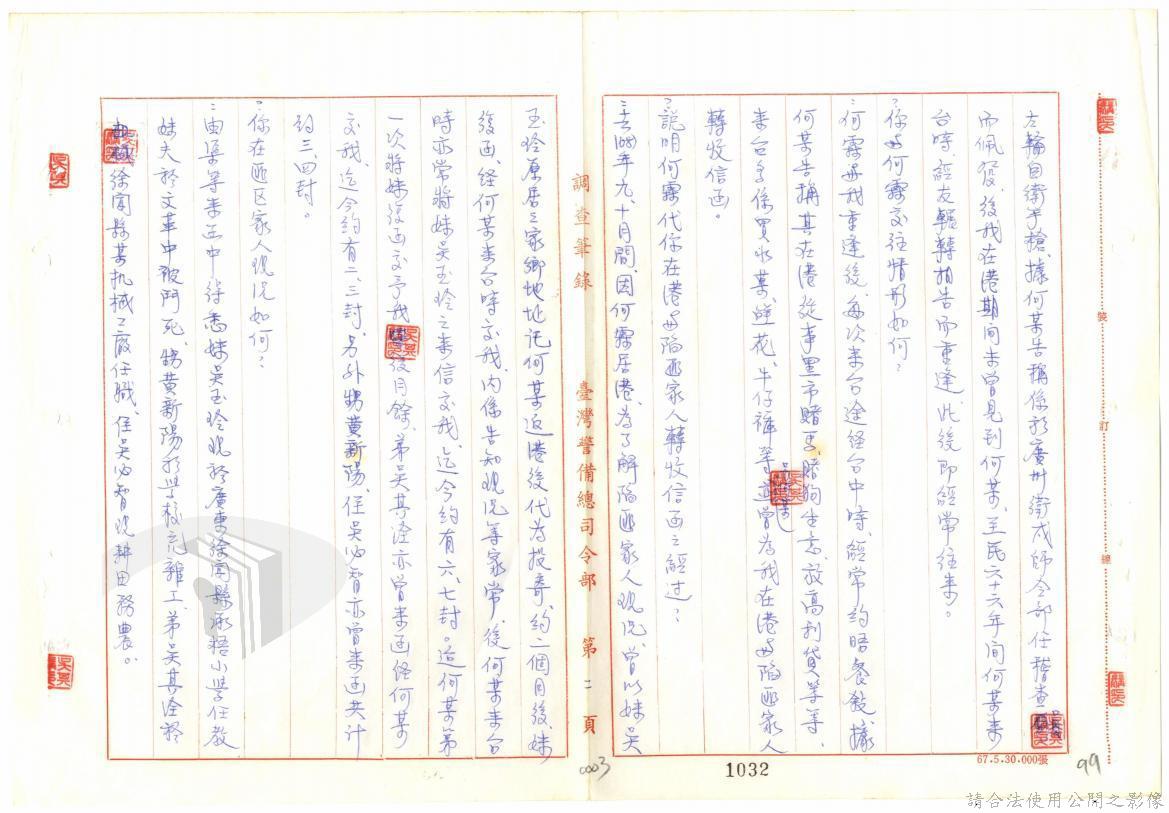 左輪自衛手槍，據何某告稱係於廣州衛戍師令部任稽查
而佩發，後我在港期间未曾見到何某，至民六十六年间何某来
台時，經友輾轉相告而重逢，此後即經常往来。
？你与何霖交往情形如何？
：何霖与我重逢後，每次来台途经台中時，經常約晤餐敍，據
何某告稱其在港從事黑市賭馬、賭狗生意，放高利貸等等，
来台主係買水菓、鮮花、牛仔褲等，並曾為我在港与陷匪家人
轉收信函。
？說明何霖代你在港与陷匪家人轉收信函之經过？
：去(68)年九、十月間，因何霖居港，為了解陷匪家人現況，曾以妹吳
玉玲原居之家鄉地址託何某返港後代為投寄，約二個月後，妹
後函，经何某来台時交我，内係告知現况等家常，後何某来台
時亦常將妹吳玉玲之来信交我，迄今約有六、七封。迨何某第
一次將妹後函交予我後月餘，弟吳其淦亦曾来函经何某
交我，迄今約有二、三封，另外甥黄新陽、侄吳必智亦曾来函共计
約三、四封。
？你在匪区家人現况如何？
：由渠等来函中得悉妹吳玉玲現於廣東徐聞縣承梧小学任教
妹夫於文革中被鬥死，甥黄新陽於学校充雜工，弟吳其淦於
徐聞縣某机械工廠任職，侄吳必智現耕田務農。
調查筆錄 臺灣警備總司令部 第二頁
裝 訂 線
67.5.30.000張
99
1032
0003
請合法使用公開之影像